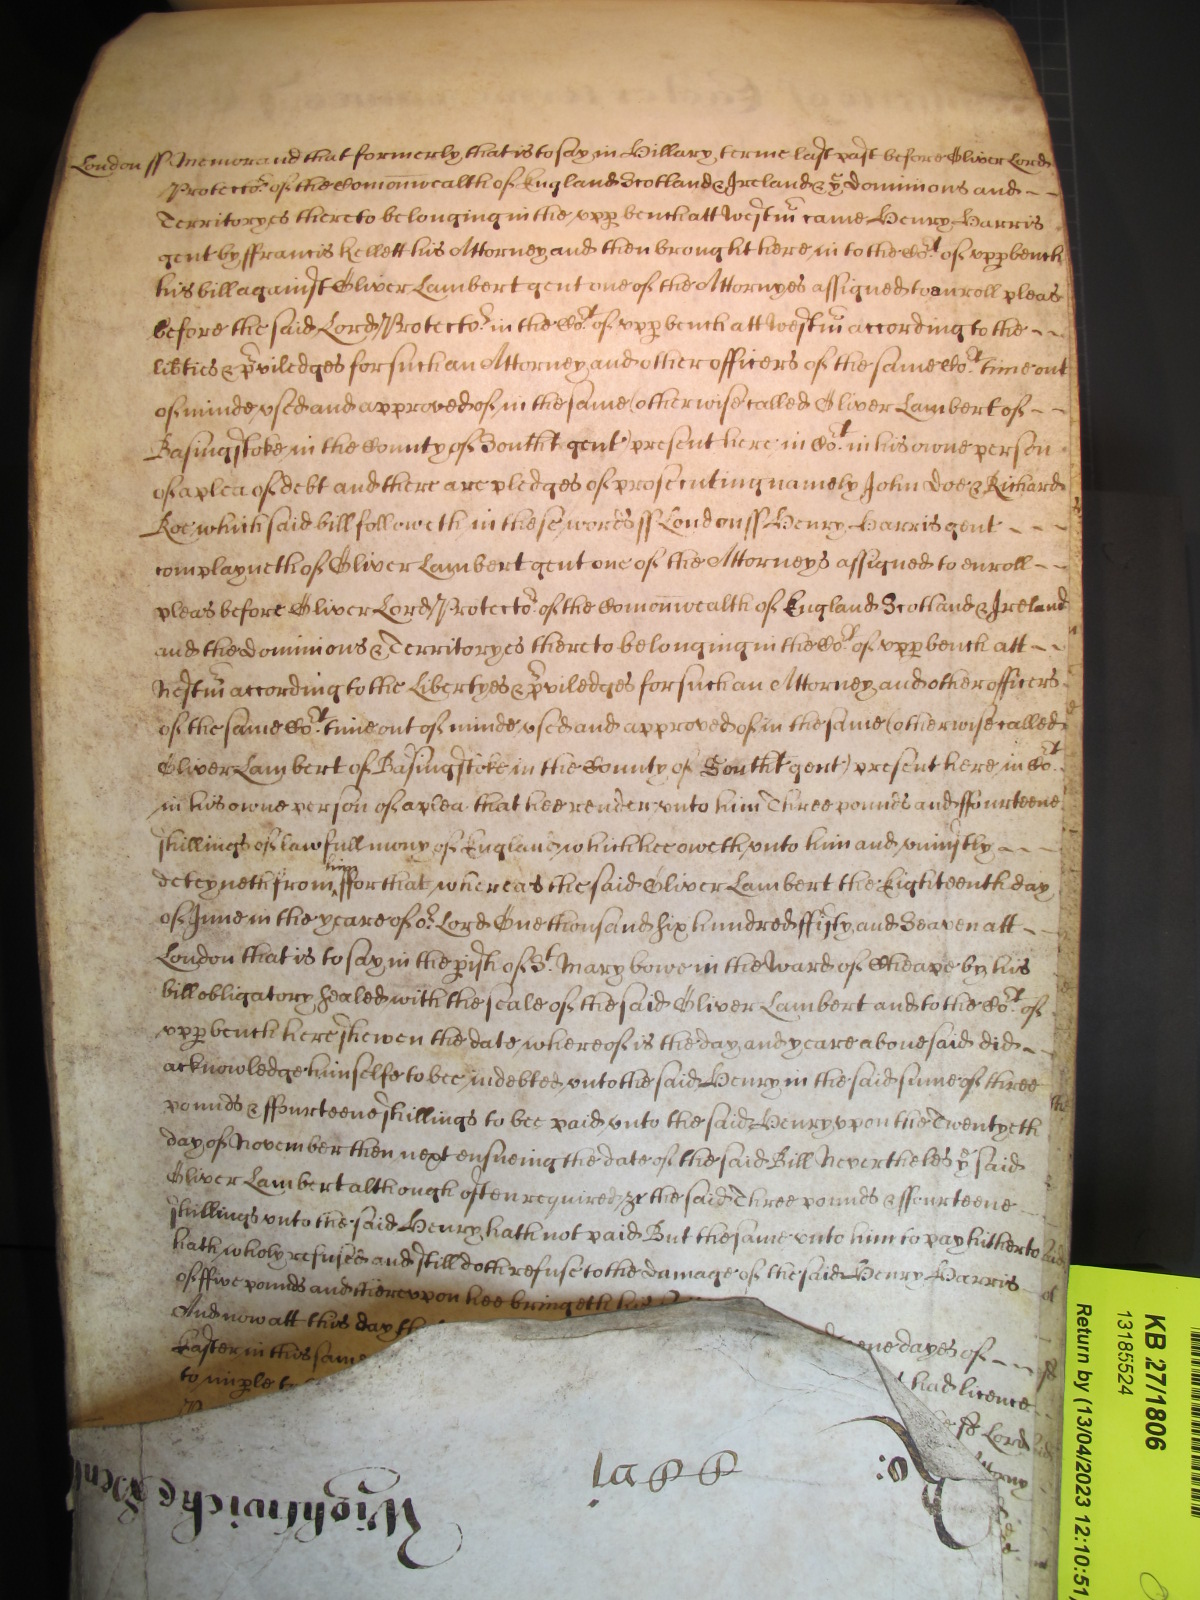 London ss Memorand that formerly that is to say in Hillary terme last past before Oliver Lord
Protector of the Comonwealth of England Scotland & Ireland & ye dominions and
Territoryes thereto belonging in the vpp bench att Westm came Henry Harris
gent by ffrancis Kellett his Attorney and then brought here in to the Cort of vpp bench
his bill against Oliver Lambert gent one of the Attornyes assigned to enroll pleas
before the said Lord Protector in the Cort of vpp bench att Westm according to the
libties & pviledges for such an Attorney and other officers of the same Cort time out
of minde vsed and approved of in the same (otherwise called Oliver Lambert of
Basingstoke in the County of Southt gent) present here in Cort in his owne person
of a plea of debt and there are pledges of prosecuting namely John Doe & Richard
Roe which said bill followeth in these words ss London ss Henry Harris gent
complayneth of Oliver Lambert gent one of the Attorneys assigned to enroll
pleas before Oliver Lord Protector of the Comonwealth of England Scotland & Ireland
and the dominions & Territoryes thereto belonging in the Cort of vpp bench att
Westm according to the Libertyes & pviledges for such an Attorney and other officers
of the same Cort time out of minde vsed and approved of in the same (otherwise called
Oliver Lambert of Basingstoke in the County of Southt gent) present here in Cort
in his owne person of a plea that hee render vnto him Three pounds and ffourteene
shillings of lawfull mony of England which hee oweth vnto him and vniustly
deteyneth from him ffor that whereas the said Oliver Lambert the Eighteenth day
of June in the yeare of or Lord One thousand six hundred ffifty and Seaven att
London that is to say in the pish of St Mary bowe in the Ward of Cheape by his
bill obligatory sealed with the seale of the said Oliver Lambert and to the Cort of
vpp bench here shewen the date whereof is the day and yeare abouesaid did
acknowledge himselfe to bee indebted vnto the said Henry in the said sume of three
pounds & ffourteene shillings to bee paid vnto the said Henry vpon the Twentyeth
day of November then next ensueing the date of the said Bill Nevertheles ye said
Oliver Lambert although often required &c the said Three pounds & ffourteene
shillings vnto the said Henry hath not paid But the same vnto him to pay hitherto
hath wholy refused and still doth refuse to the damage of the said Henry Harris
of ffive pounds and thereupon hee bringeth his
And now att this day
dayes of
Easter in this same
had licence
to imple
Lord
Ro:
Wightwicke
KB 27/1806
13185524
Return by (13/04/2023 12:10:51